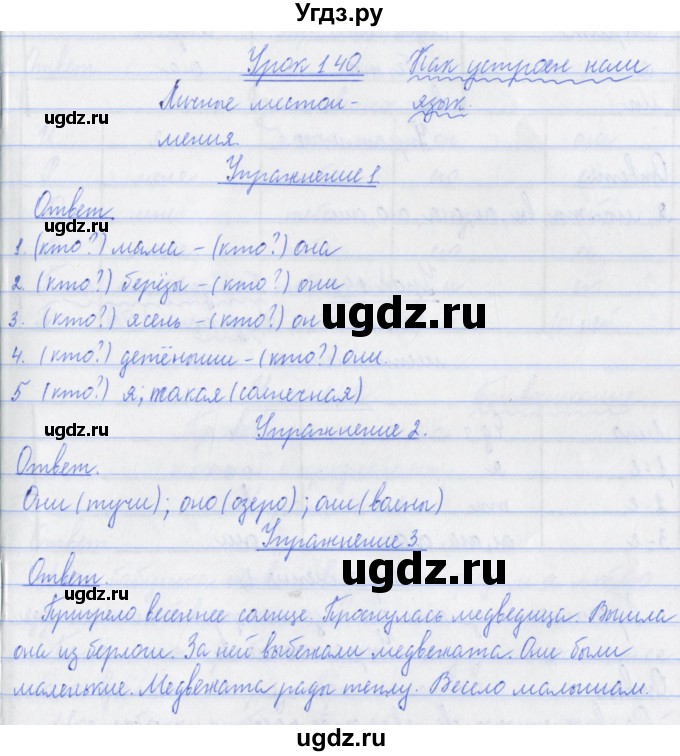 Угдз.ру
Урок 140. Как устроен наш
Личные местои- язык.
ugdz.ru
мения.
ugdz.ru
Упражнение 1
Ответ.
1. (кто?) мама – (кто?) она
2. (кто?) берёзы – (кто?) они
3. (кто?) ясень – (кто?) он
ugdz.ru
4. (кто?) детёныши – (кто?) они.
5 (кто?) я; такая (солнечная)
Упражнение 2.
ugdz.ru
Ответ.
Они (тучи); оно (озеро); они (волны)
Упражнение 3.
ugdz.ru
Ответ.
ugdz.ru
Пригрело весеннее солнце. Проснулась медведица. Вышла
она из берлоги. За ней выбежали медвежата. Они были
маленькие. Медвежата рады теплу. Весело малышам.
ugdz.ru
Угдз.ру